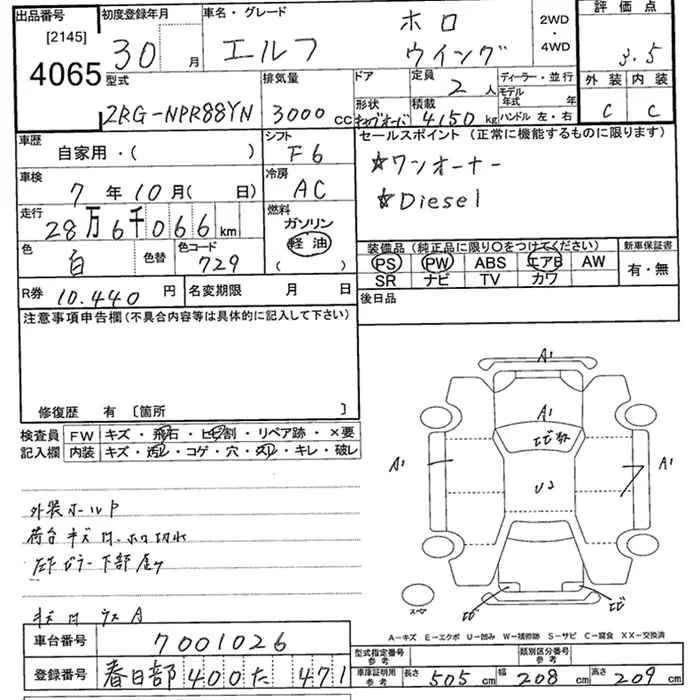 出品番号
[2145]
4065
初度登録年月
30 月
車名・グレード
エルフ
ホロ
ウイング
2WD
・
4WD
評価点
3.5
外装 内装
C C
型式
2RG-NPR88YN
排気量
3000 cc
ドア
形状
定員
2 人
積載
4150 kg
ディーラー・並行
モデル年式 年
ハンドル 左・右
車歴
自家用・( )
シフト
F6
車検
7 年 10 月 ( 日)
冷房
AC
走行
28万6千066 km
燃料
ガソリン
軽油
( )
色
白
色替
色コード
729
R券 10.440 円
名変期限 月 日
セールスポイント (正常に機能するものに限ります)
☆ワンオーナー
☆Diesel
装備品 (純正品に限り○をつけてください)
PS PW ABS エアB AW
SR ナビ TV カワ
新車保証書
有・無
後日品
注意事項申告欄 (不具合内容等は具体的に記入して下さい)
修復歴 有 [箇所 ]
検査員
記入欄
FW キズ・飛石・ヒビ割・リペア跡・×要
内装 キズ・汚レ・コゲ・穴・スレ・キレ・破レ
外装
荷台キズ
下部
A1
A1
A1
A1
U2
スペア
A-キズ E-エクボ U-凹み W-補修跡 S-サビ C-腐食 XX-交換済
車台番号 7001026
登録番号 春日部 400 た 471
型式指定番号
参考
類別区分番号
参考
車庫証明用
参考
長さ 505 cm
幅 208 cm
高さ 209 cm